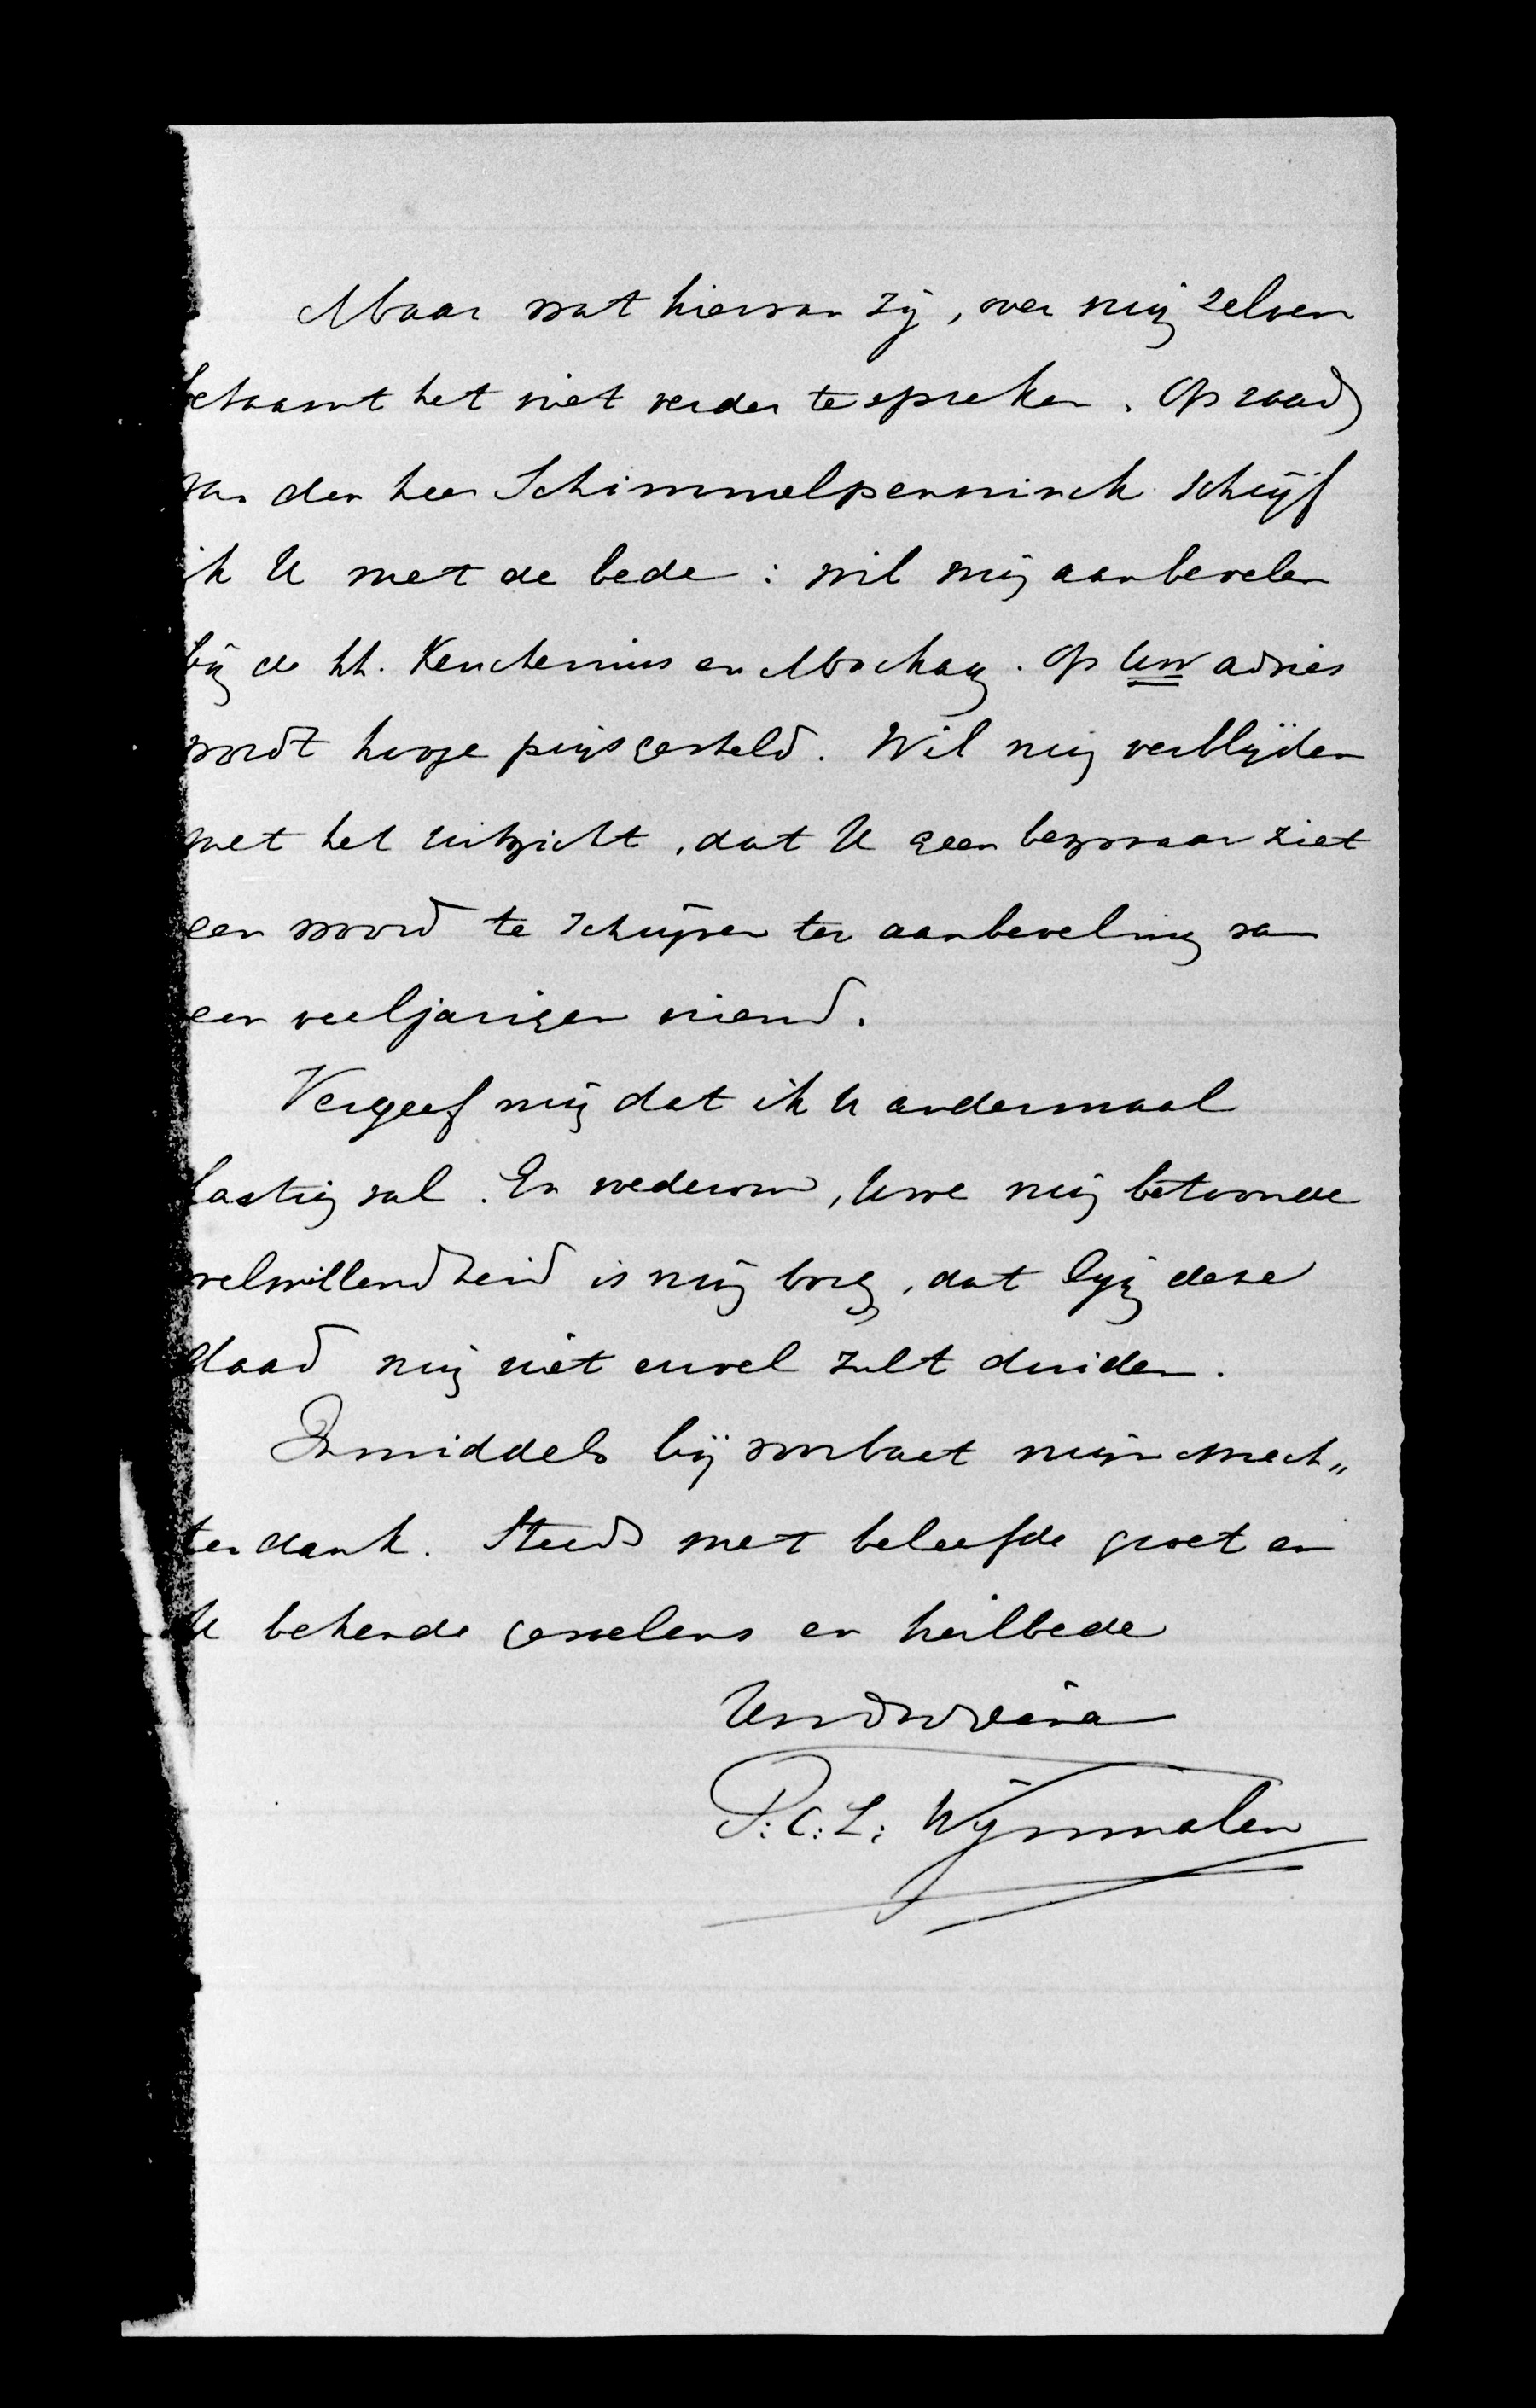 Maar wat hiervan zij, over mij zelven
betaamt het niet verder te spreken. Op raad
van den heer Schimmelpenninck schrijf
ik U met de bede: wil mij aanbevelen
bij de hh. Keuchenius en Mackay. Op Uw advies
wordt hooge prijs gesteld. Wil mij verblijden
met het uitzicht, dat U geen bezwaar ziet
een woord te schrijven ter aanbeveling van
een veeljarigen vriend.
Vergeef mij dat ik U andermaal
lastig val. En wederom, Uwe mij betoonde
welwillendheid is mij borg, dat Gij deze
daad mij niet euvel zult duiden.
Inmiddels bij voorbaat mijn oprech„
ten dank. Steeds met beleefde groet en
U bekende gevoelens en heilbede
Uwdwdiena
P: C: L: Wijnmalen